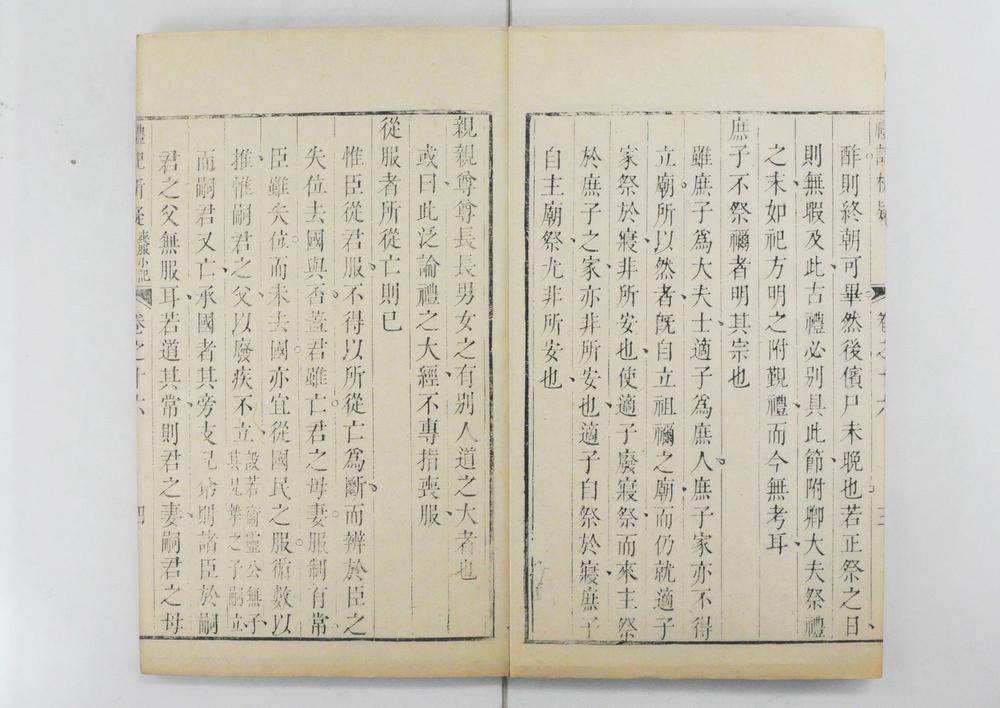 酢則終朝可畢然後儐尸未晚也若正祭之日
則無暇及此古禮必别具此節附卿大夫祭禮
之末如祀方明之附覲禮而今無考耳
庶子不祭禰者明其宗也
雖庶子爲大夫士適子爲庶人庶子家亦不得
立廟所以然者旣自立祖禰之廟而仍就適子
家祭於寢非所安也使適子廢寢祭而來主祭
於庶子之家亦非所安也適子自祭於寢庶子
自主廟祭尤非所安也
卷之十六
三
親親尊尊長長男女之有别人道之大者也
或曰此泛論禮之大經不專指喪服
從服者所從亡則已
惟臣從君服不得以所從亡爲斷而辨於臣之
失位去國與否蓋君雖亡君之母妻服制有常
臣雖失位而未去國亦宜從國民之服循數以
推惟嗣君之父以廢疾不立設若衛靈公無子其兄摯之子嗣立
而嗣君又亡承國者其旁支兄弟則諸臣於嗣
君之父無服耳若道其常則君之妻嗣君之母
禮記析疑
喪服小記
卷之十六
四